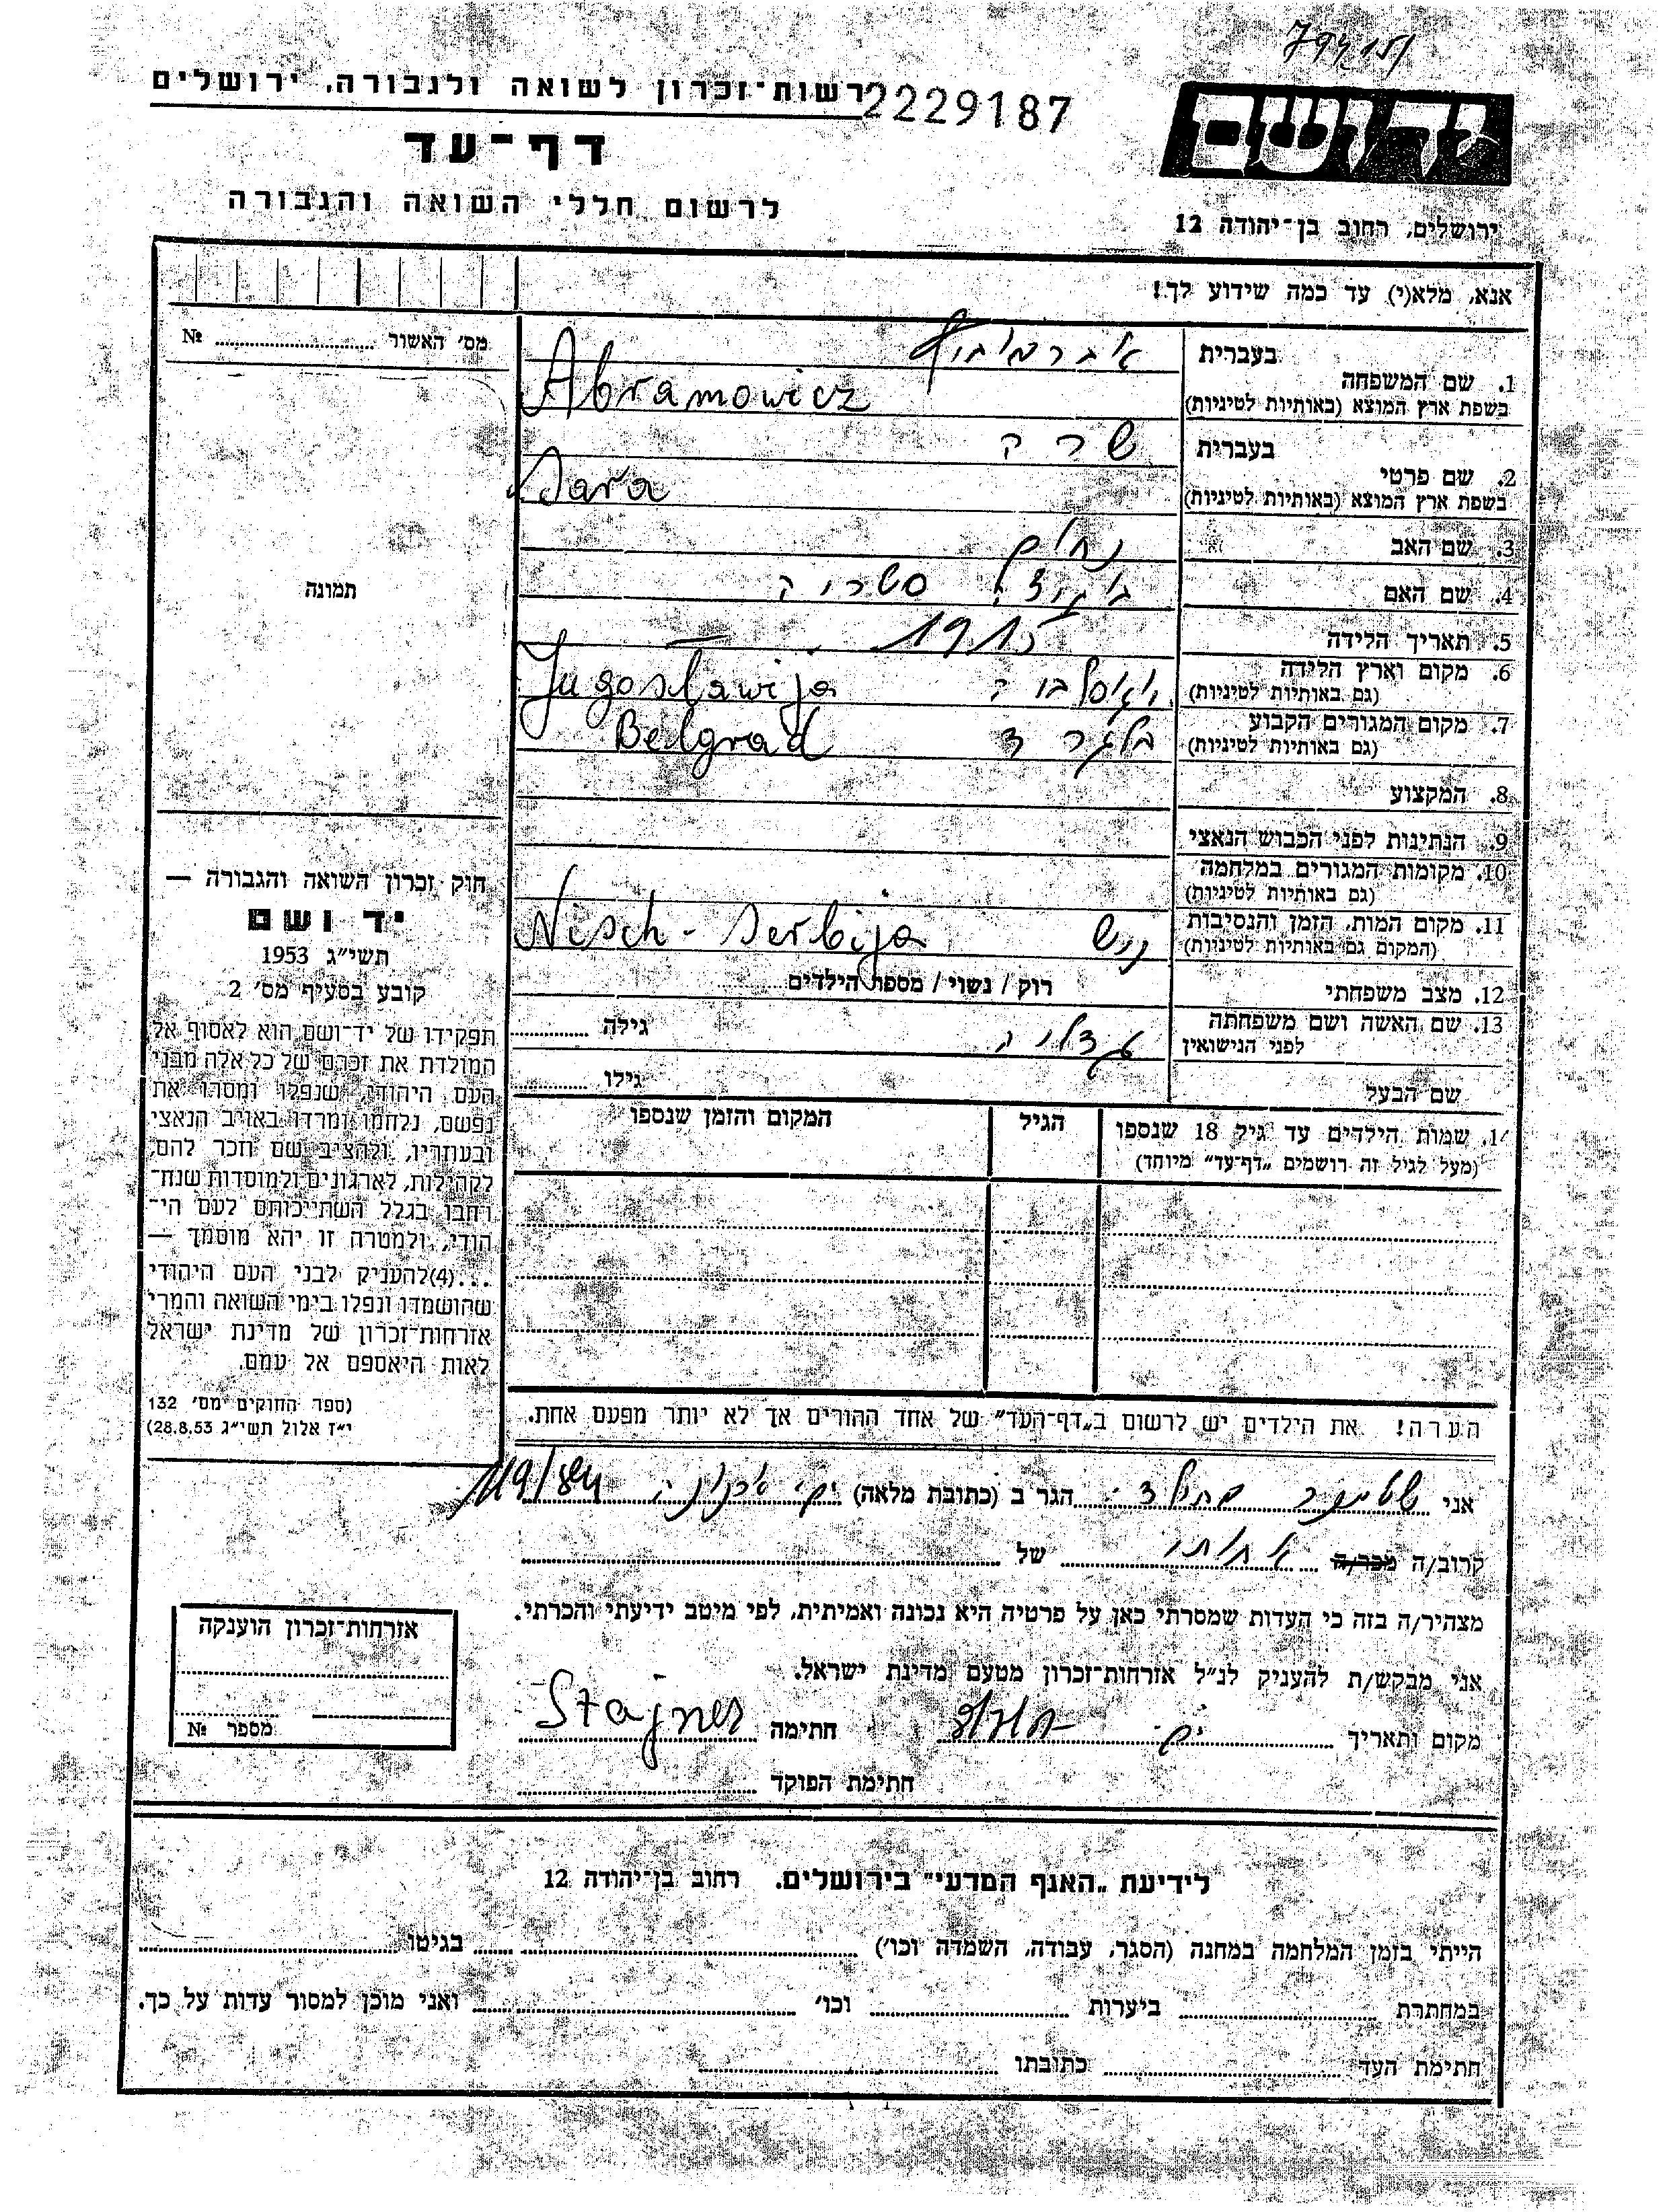 רשות־זכרון לשואה ולגבורה, ירושלים
2229187
דף־עד
לרשום חללי השואה והגבורה
ידושם
ירושלים, רחוב בן־יהודה 12
אנא, מלא(י) עד כמה שידוע לך!
מס' האשור № 
תמונה
1. שם המשפחה
בעברית אברמוביץ
בשפת ארץ המוצא (באותיות לטיניות) Abramowicz
2. שם פרטי
בעברית שרה
בשפת ארץ המוצא (באותיות לטיניות) Sara
3. שם האב נחום
4. שם האם
5. תאריך הלידה 1915
6. מקום וארץ הלידה
(גם באותיות לטיניות) יוגוסלביה Jugosławija
7. מקום המגורים הקבוע
(גם באותיות לטיניות) בלגרד Belgrad
8. המקצוע
9. הנתינות לפני הכבוש הנאצי
10. מקומות המגורים במלחמה
(גם באותיות לטיניות)
11. מקום המות, הזמן והנסיבות
(המקום גם באותיות לטיניות) ניש Nisch - Serbija
12. מצב משפחתי רוק / נשוי / מספר הילדים
13. שם האשה ושם משפחתה
לפני הנישואין גדליה גילה
שם הבעל גילו
שמות הילדים עד גיל 18 שנספו הגיל המקום והזמן שנספו
(מעל לגיל זה רושמים „דף־עד" מיוחד)
הערה! את הילדים יש לרשום ב„דף־העד" של אחד ההורים אך לא יותר מפעם אחת.
חוק זכרון השואה והגבורה —
יד ושם
תשי"ג 1953
קובע בסעיף מס' 2
תפקידו של יד־ושם הוא לאסוף אל
המולדת את זכרם של כל אלה מבני
העם היהודי, שנפלו ומסרו את
נפשם, נלחמו ומרדו באויב הנאצי
ובעוזריו, ולהציב שם וזכר להם,
לקהילות, לארגונים ולמוסדות שנח־
רבו בגלל השתייכותם לעם הי־
הודי, ולמטרה זו יהא מוסמך —
...(4)להעניק לבני העם היהודי
שהושמדו ונפלו בימי השואה והמרי
אזרחות־זכרון של מדינת ישראל
לאות היאספם אל עמם.
(ספר החוקים מס' 132
י"ז אלול תשי"ג 28.8.53)
אני שטיינר הגר ב (כתובת מלאה) 119/84
קרוב/ה מכר/ה של
מצהיר/ה בזה כי העדות שמסרתי כאן על פרטיה היא נכונה ואמיתית, לפי מיטב ידיעתי והכרתי.
אני מבקש/ת להעניק לנ"ל אזרחות־זכרון מטעם מדינת ישראל.
מקום ותאריך חתימה Stajner
חתימת הפוקד
אזרחות־זכרון הוענקה
מספר №
לידיעת „האגף המדעי" בירושלים, רחוב בן־יהודה 12
הייתי בזמן המלחמה במחנה (הסגר, עבודה, השמדה וכו') בגיטו
במחתרת ביערות וכו' ואני מוכן למסור עדות על כך.
חתימת העד כתובתו